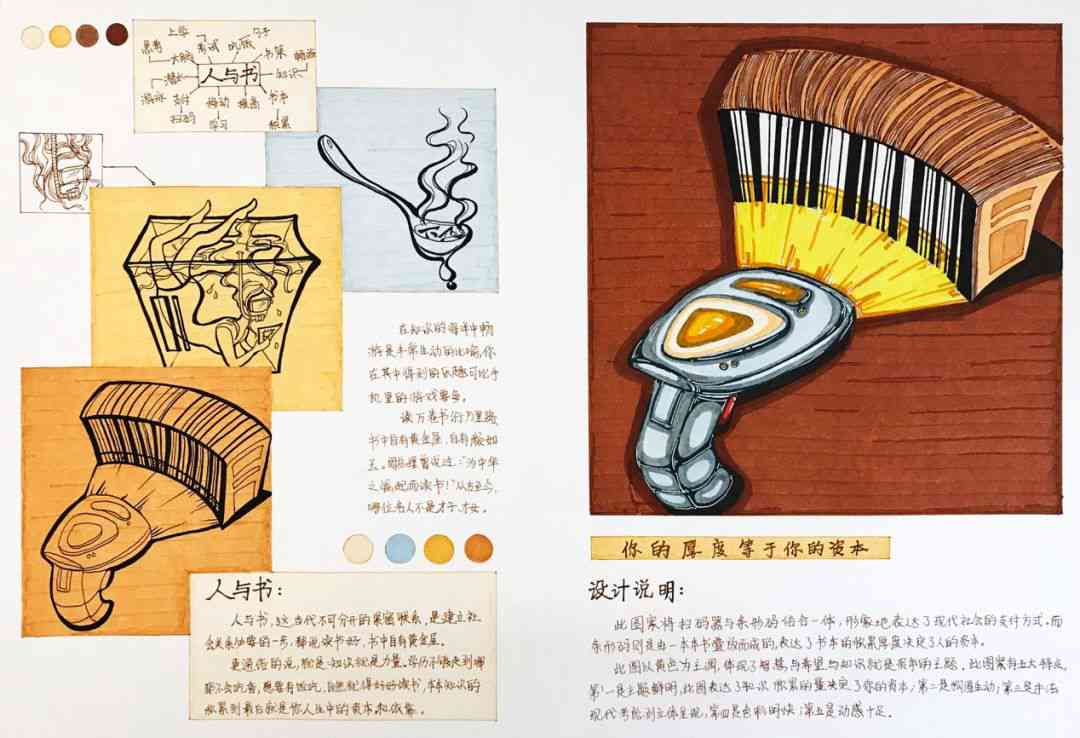 上学
句子
思考
考试
吃饭
书架
大脑
畅游
人与书
知识
潜水
游泳
支付
运动
提高
书本
扫码
学习
积累
在知识的海洋中畅
游是非常生动的比喻,你
在其中得到的乐趣可比手
机里的游戏要多。
读万卷书行万里路,
书中自有黄金屋,自有颜如
玉。周恩来曾说过:“为中华
之崛起而读书!”从古至今,
哪位名人不是才子、才女。
人与书:
人与书,这当代不可分开的紧密联系,是建立社
会关系必要的一步,都说读书好,书中自有黄金屋。
更通俗的说,就是知识就是力量。学历不够走到哪
都不会吃香,想要有饭吃,自然就得好好读书,本本知识的
积累到最后就是你人生中的资本和依靠。
你的厚度等于你的资本
设计说明:
此图案将扫码器与条形码结合一体,形象地表达了现代社会的支付方式。而
条形码则是由一本本书叠放而成的,表达了书本的积累厚度决定了人的资本。
此图以黄色为主调,体现了智慧与希望,与知识就是资本的主题。此图案有五大特点,
第一是主题鲜明,此图表达了知识积累的量决定了你的资本;第二是构图生动;第三是手法
现代考究到立体呈现,第四是色彩明快;第五是动感十足。